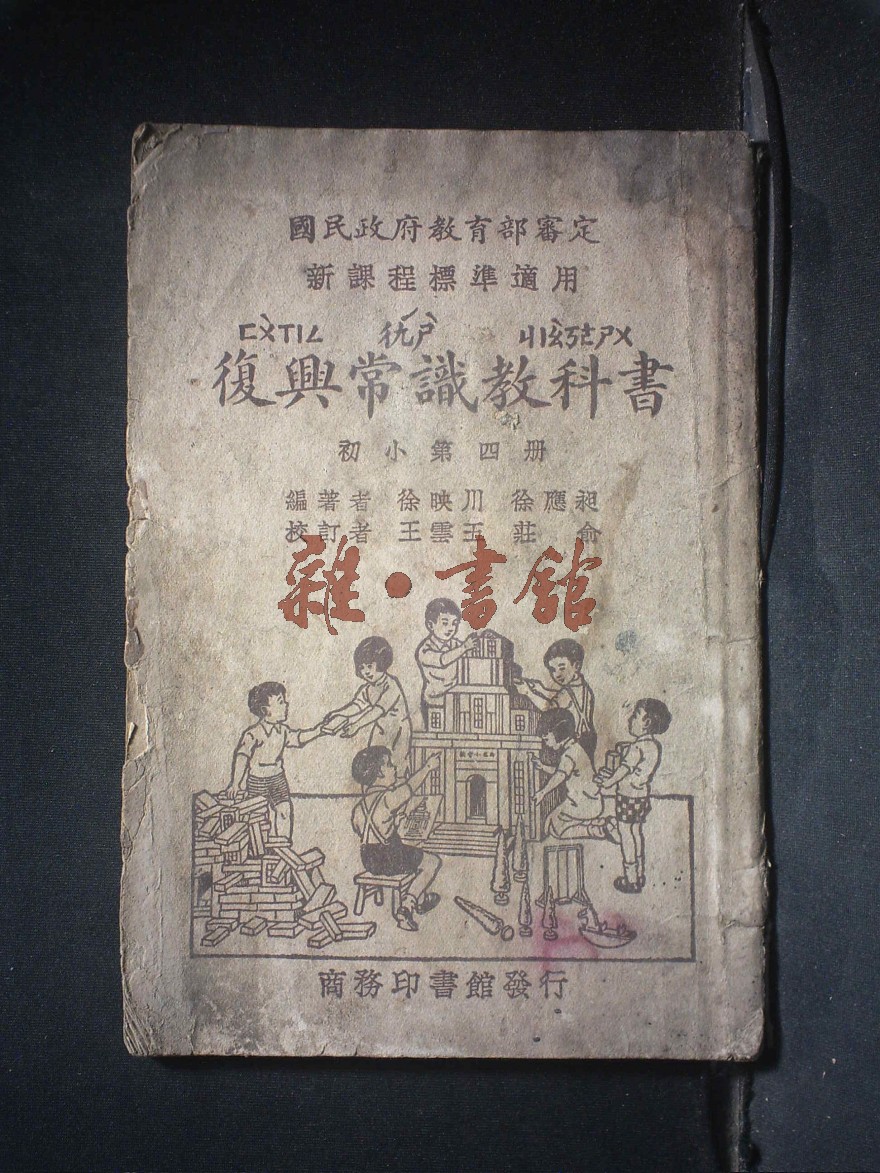 國民政府教育部審定
新課程標準適用
ㄈㄨˋㄒㄧㄥ ㄔㄤˊㄕˋ ㄐㄧㄠˋㄎㄜㄕㄨ
復興常識教科書
初小第四册
編著者 徐映川 徐應昶
校訂者 王雲五 莊俞
雜·書館
商務印書館發行